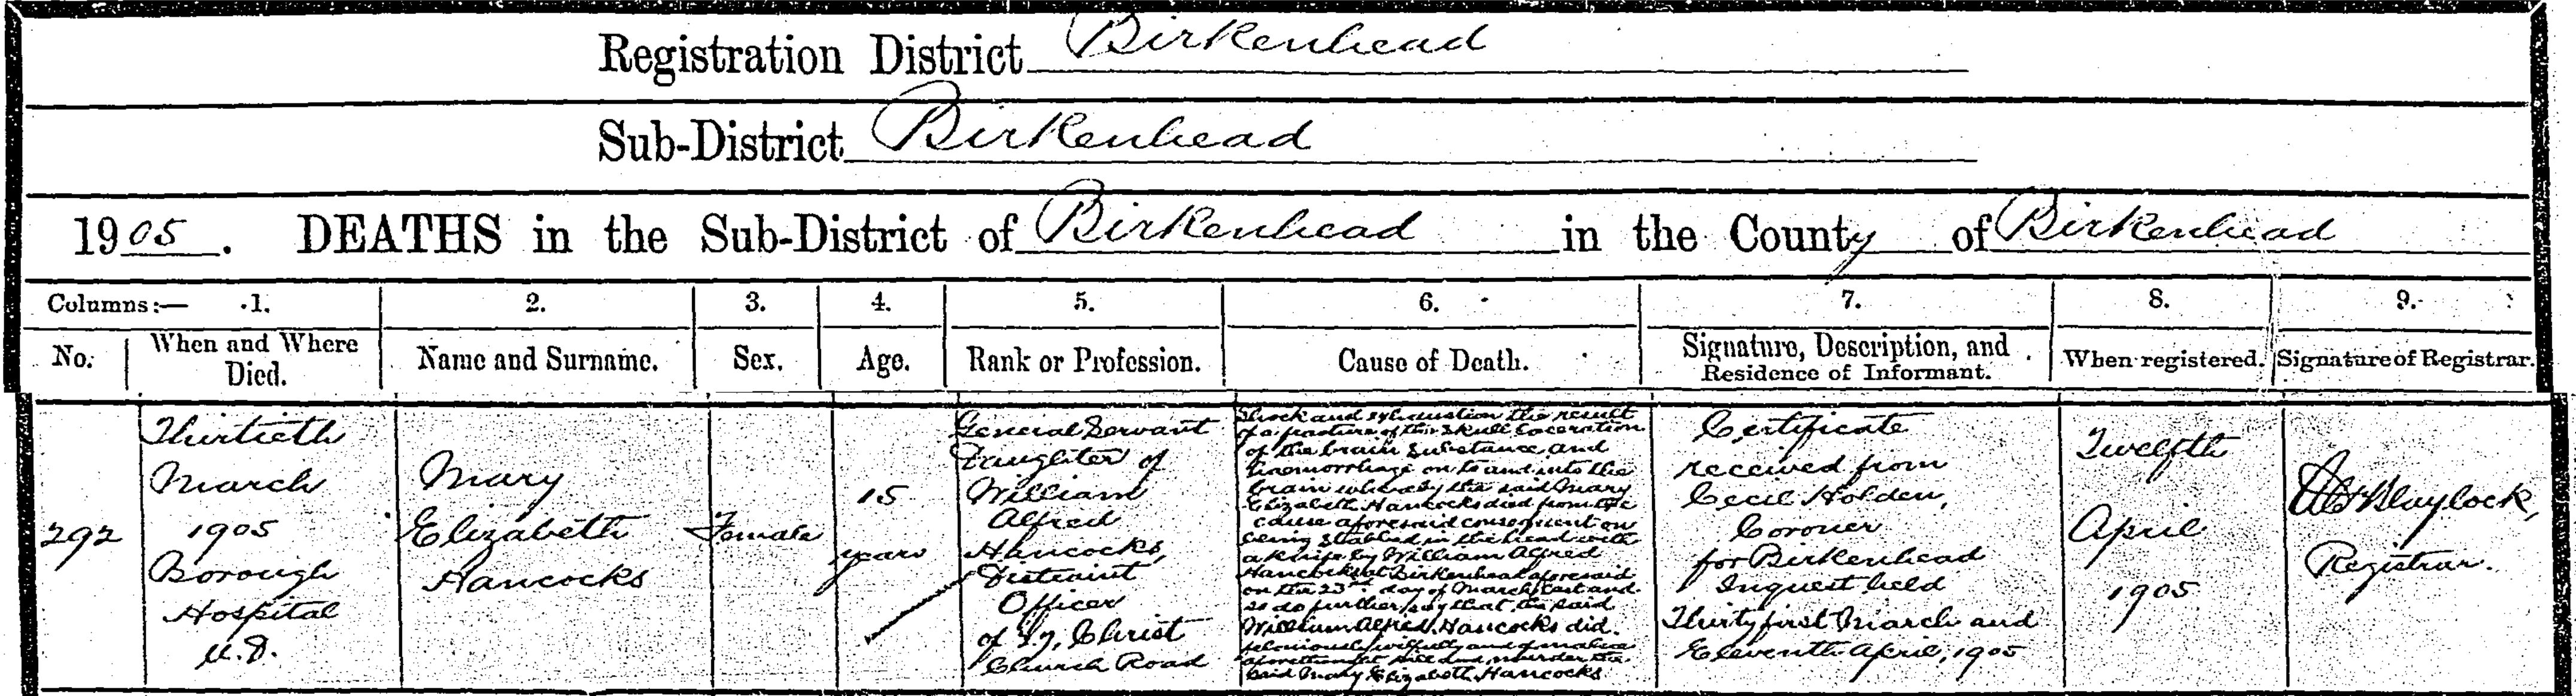 Registration District Birkenhead
Sub-District Birkenhead
1905. DEATHS in the Sub-District of Birkenhead in the County of Birkenhead
Columns:— 1. 2. 3. 4. 5. 6. 7. 8. 9.
No. When and Where Died. Name and Surname. Sex. Age. Rank or Profession. Cause of Death. Signature, Description, and Residence of Informant. When registered. Signature of Registrar.
292
Thirtieth
March
1905
Borough
Hospital
U.D.
Mary
Elizabeth
Hancocks
Female
15
years
General Servant
Daughter of
William
Alfred
Hancocks,
Distraint
Officer
of Christ
Church Road
Shock and exhaustion the result
of a fracture of the skull laceration
of the brain substance and
haemorrhage on to and into the
brain whereby the said Mary
Elizabeth Hancocks died from the
cause aforesaid consequent on
being stabbed in the head with
a knife by William Alfred
Hancocks at Birkenhead aforesaid
on the 23rd day of March last and
so do further say that the said
William Alfred Hancocks did
feloniously wilfully and of malice
aforethought kill and murder the
said Mary Elizabeth Hancocks
Certificate
received from
Cecil Holden,
Coroner
for Birkenhead
Inquest held
Thirty first March and
Eleventh April, 1905
Twelfth
April
1905
Blaylock,
Registrar.